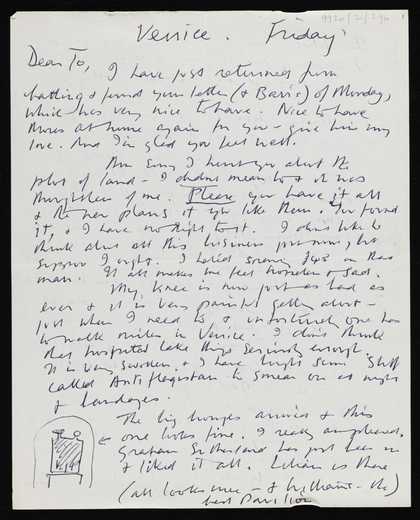 9920/2/290
Venice. Friday
Dear Jo,
I have just returned from
bathing & found your letter (& Barri's) of Monday,
which was very nice to have. Nice to have
at home again for you – give him my
love. And I'm glad you feel well.
I'm sorry I hurt you about the
plot of land – I didn't mean to & it was
thoughtless of me. Please you have it all
& the new plans if you like them. You found
it, & I have no right to it. I don't like to
think about all this business just now, but
suppose I ought. I hated seeing Jeps on that
man. It all makes me feel homeless & sad.
My knee is now just as bad as
ever & it is very painful getting about –
just when I need to & unfortunately one has
to walk miles in Venice. I don't think
that hospital take things seriously enough.
It is very swollen, & I have bought some stuff
called Antiflogistan to smear on at night
& bandages.
The big bronzes arrived & this
one looks fine. I really am pleased.
Graham Sutherland has just been in
& liked it all. Lilian is there
(all looks nice – & brilliant – the)
best Pavilion